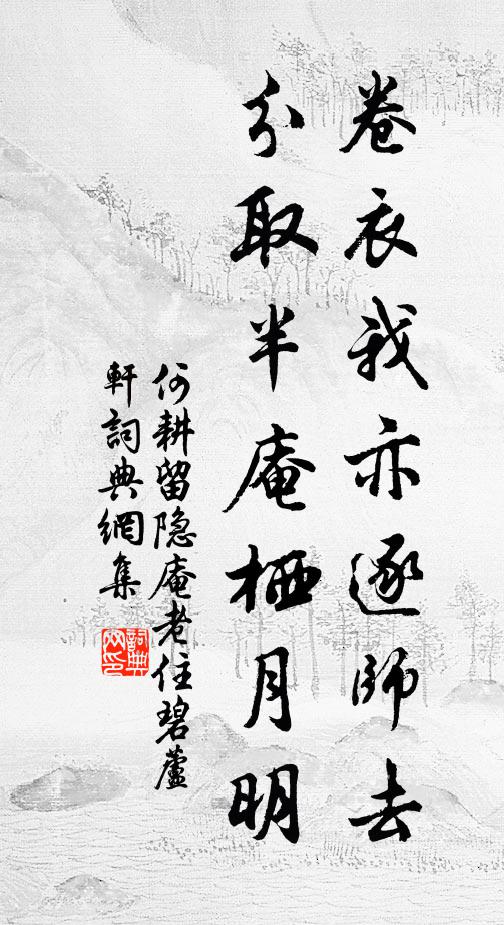 卷衣我亦逐师去
分取半庵栖月明
何耕留隐庵老住碧蘆
軒詞典網集
詞典
网印